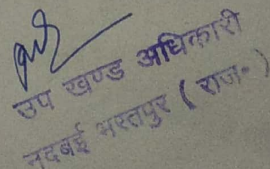 उप खण्ड अधिकारी
नदबई भरतपुर ( राज॰ )